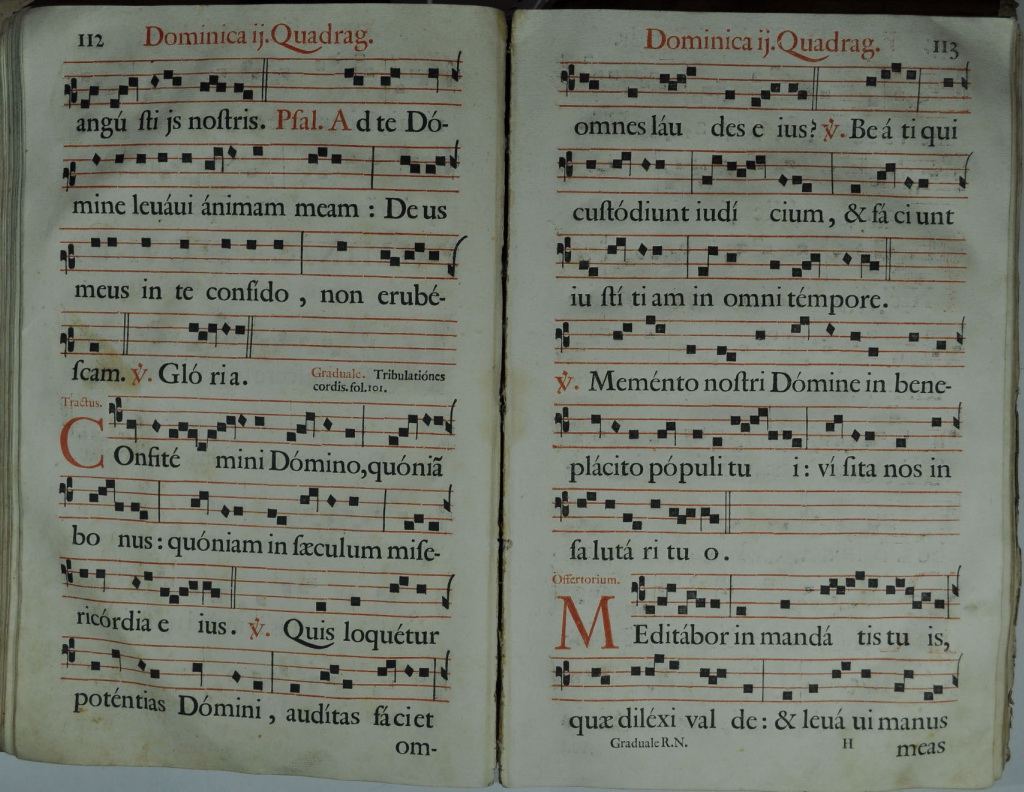 112 Dominica ij. Quadrag.
angú ſti js noſtris. Pſal. A d te Dó-
mine leuáui ánimam meam : De us
meus in te confído , non erubé-
ſcam. ℣. Gló ri a. Graduale. Tribulatiónes
cordis.fol.101.
Tractus.
COnfité mini Dómino, quóniã
bo nus : quóniam in ſæculum miſe-
ricórdia e ius. ℣. Quis loquétur
poténtias Dómini , audítas fáciet
om-
Dominica ij. Quadrag. 113
omnes láu des e ius? ℣. Be á ti qui
cuſtódiunt iudí cium, & fá ci unt
iu ſtí ti am in omni témpore.
℣. Meménto noſtri Dómine in bene-
plácito pópuli tu i : ví ſita nos in
ſa lutá ri tu o.
Offertorium.
MEditábor in mandá tis tu is,
quæ diléxi val de : & leuá ui manus
Graduale R.N. H meas